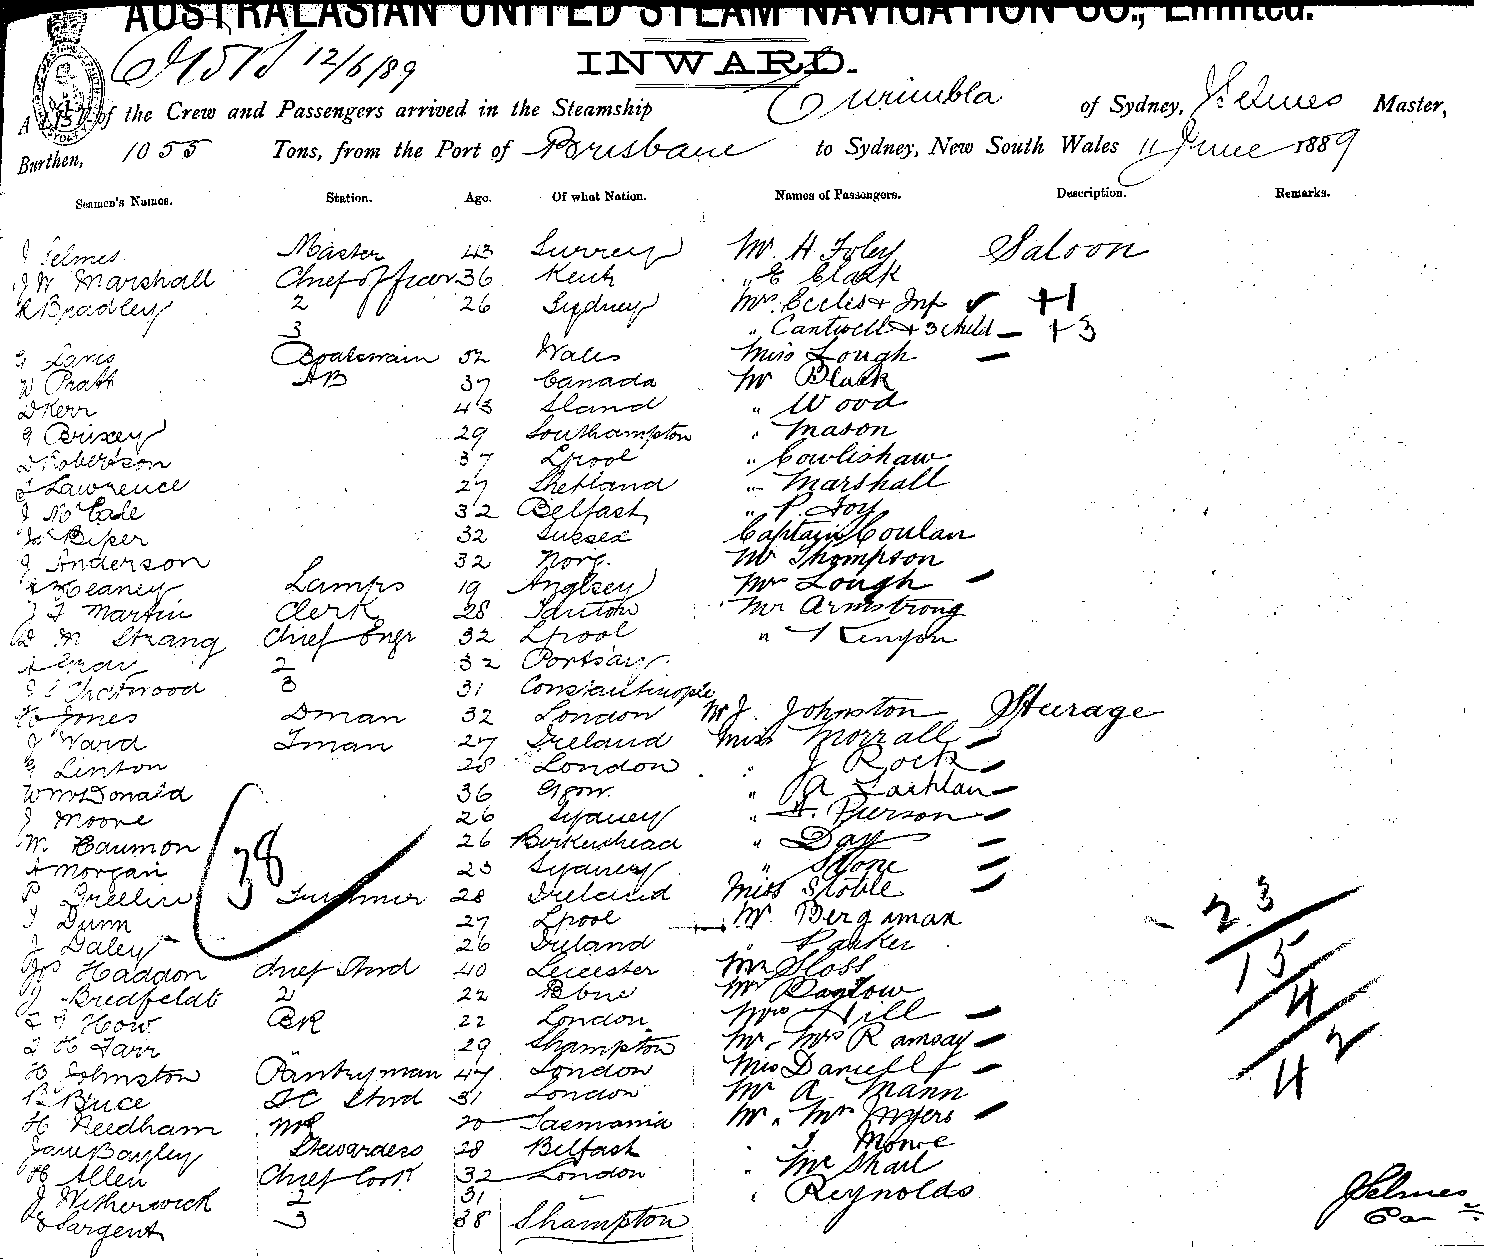 AUSTRALASIAN UNITED STEAM NAVIGATION CO., Limited.
12/6/89 INWARD.
A LIST of the Crew and Passengers arrived in the Steamship Curimbla of Sydney, J Selmes Master,
Burthen, 1055 Tons, from the Port of Brisbane to Sydney, New South Wales 11 June 1889
Seamen's Names. Station. Age. Of what Nation. Names of Passengers. Description. Remarks.
J Selmes Master 43 Surrey Mr H Foley Saloon
J W Marshall Chief officer 36 Kent " E Clark
R Bradley 2 26 Sydney Mrs Eccles + Inf +1
3 " Cantwell + 3 child +3
Boatswain 52 Wales Miss Lough
W Pratt AB 37 Canada Mr Black
D Kerr 43 " Wood
G Brixey 29 Southampton " Mason
D Robertson 37 Lpool " Cowlishaw
Lawrence 27 Shetland " Marshall
J McCale 32 Belfast " P. Foy
Piper 32 Sussex Captain Coulan
J Anderson 32 Norg. Mr Thompson
Heaney Lamps 19 Anglsey Mrs Lough
J F Martin Clerk 28 Mr Armstrong
D M Strang Chief Engr 32 Lpool " Kenyon
A Gray 2 32 Portsay
J Chatwood 3 31 Constantinople
H Jones Dman 32 London Mr J. Johnston Sturage
J Ward Fman 27 Ireland Miss Morrall
G Linton 28 London " J Rock
W McDonald 36 Ggow. " A Lachlan
J Moore 26 Sydney " Pierson
W. Haumon 26 Birkenhead " Day
A Morgan 23 Sydney " Stone
38
P Greelin Trimmer 28 Ireland Miss Stoble
J Dunn 27 Lpool Mr. Bergman 23
J Daley 26 Ireland " Parker
Haddon Chief Stwd 40 Leicester Mr Sloss 15
J Bredfeldt 2 22 Mr Bagtow 4
How BR 22 London Mrs Hill
H Farr 29 Shampton Mr. Mrs Ramsay 42
H Johnston Pantryman 47 London Miss Daniell
R Bruce FC Stwd 31 London Mr A Mann
H Needham 20 Tasmania Mr. Mrs Myers
Jane Bayley Stewardess 28 Belfast " J Monre
H Allen Chief Cook 32 London " McShail
J Witherwick 2 31 " Reynolds
Sargent 3 38 Shampton
J Selmes